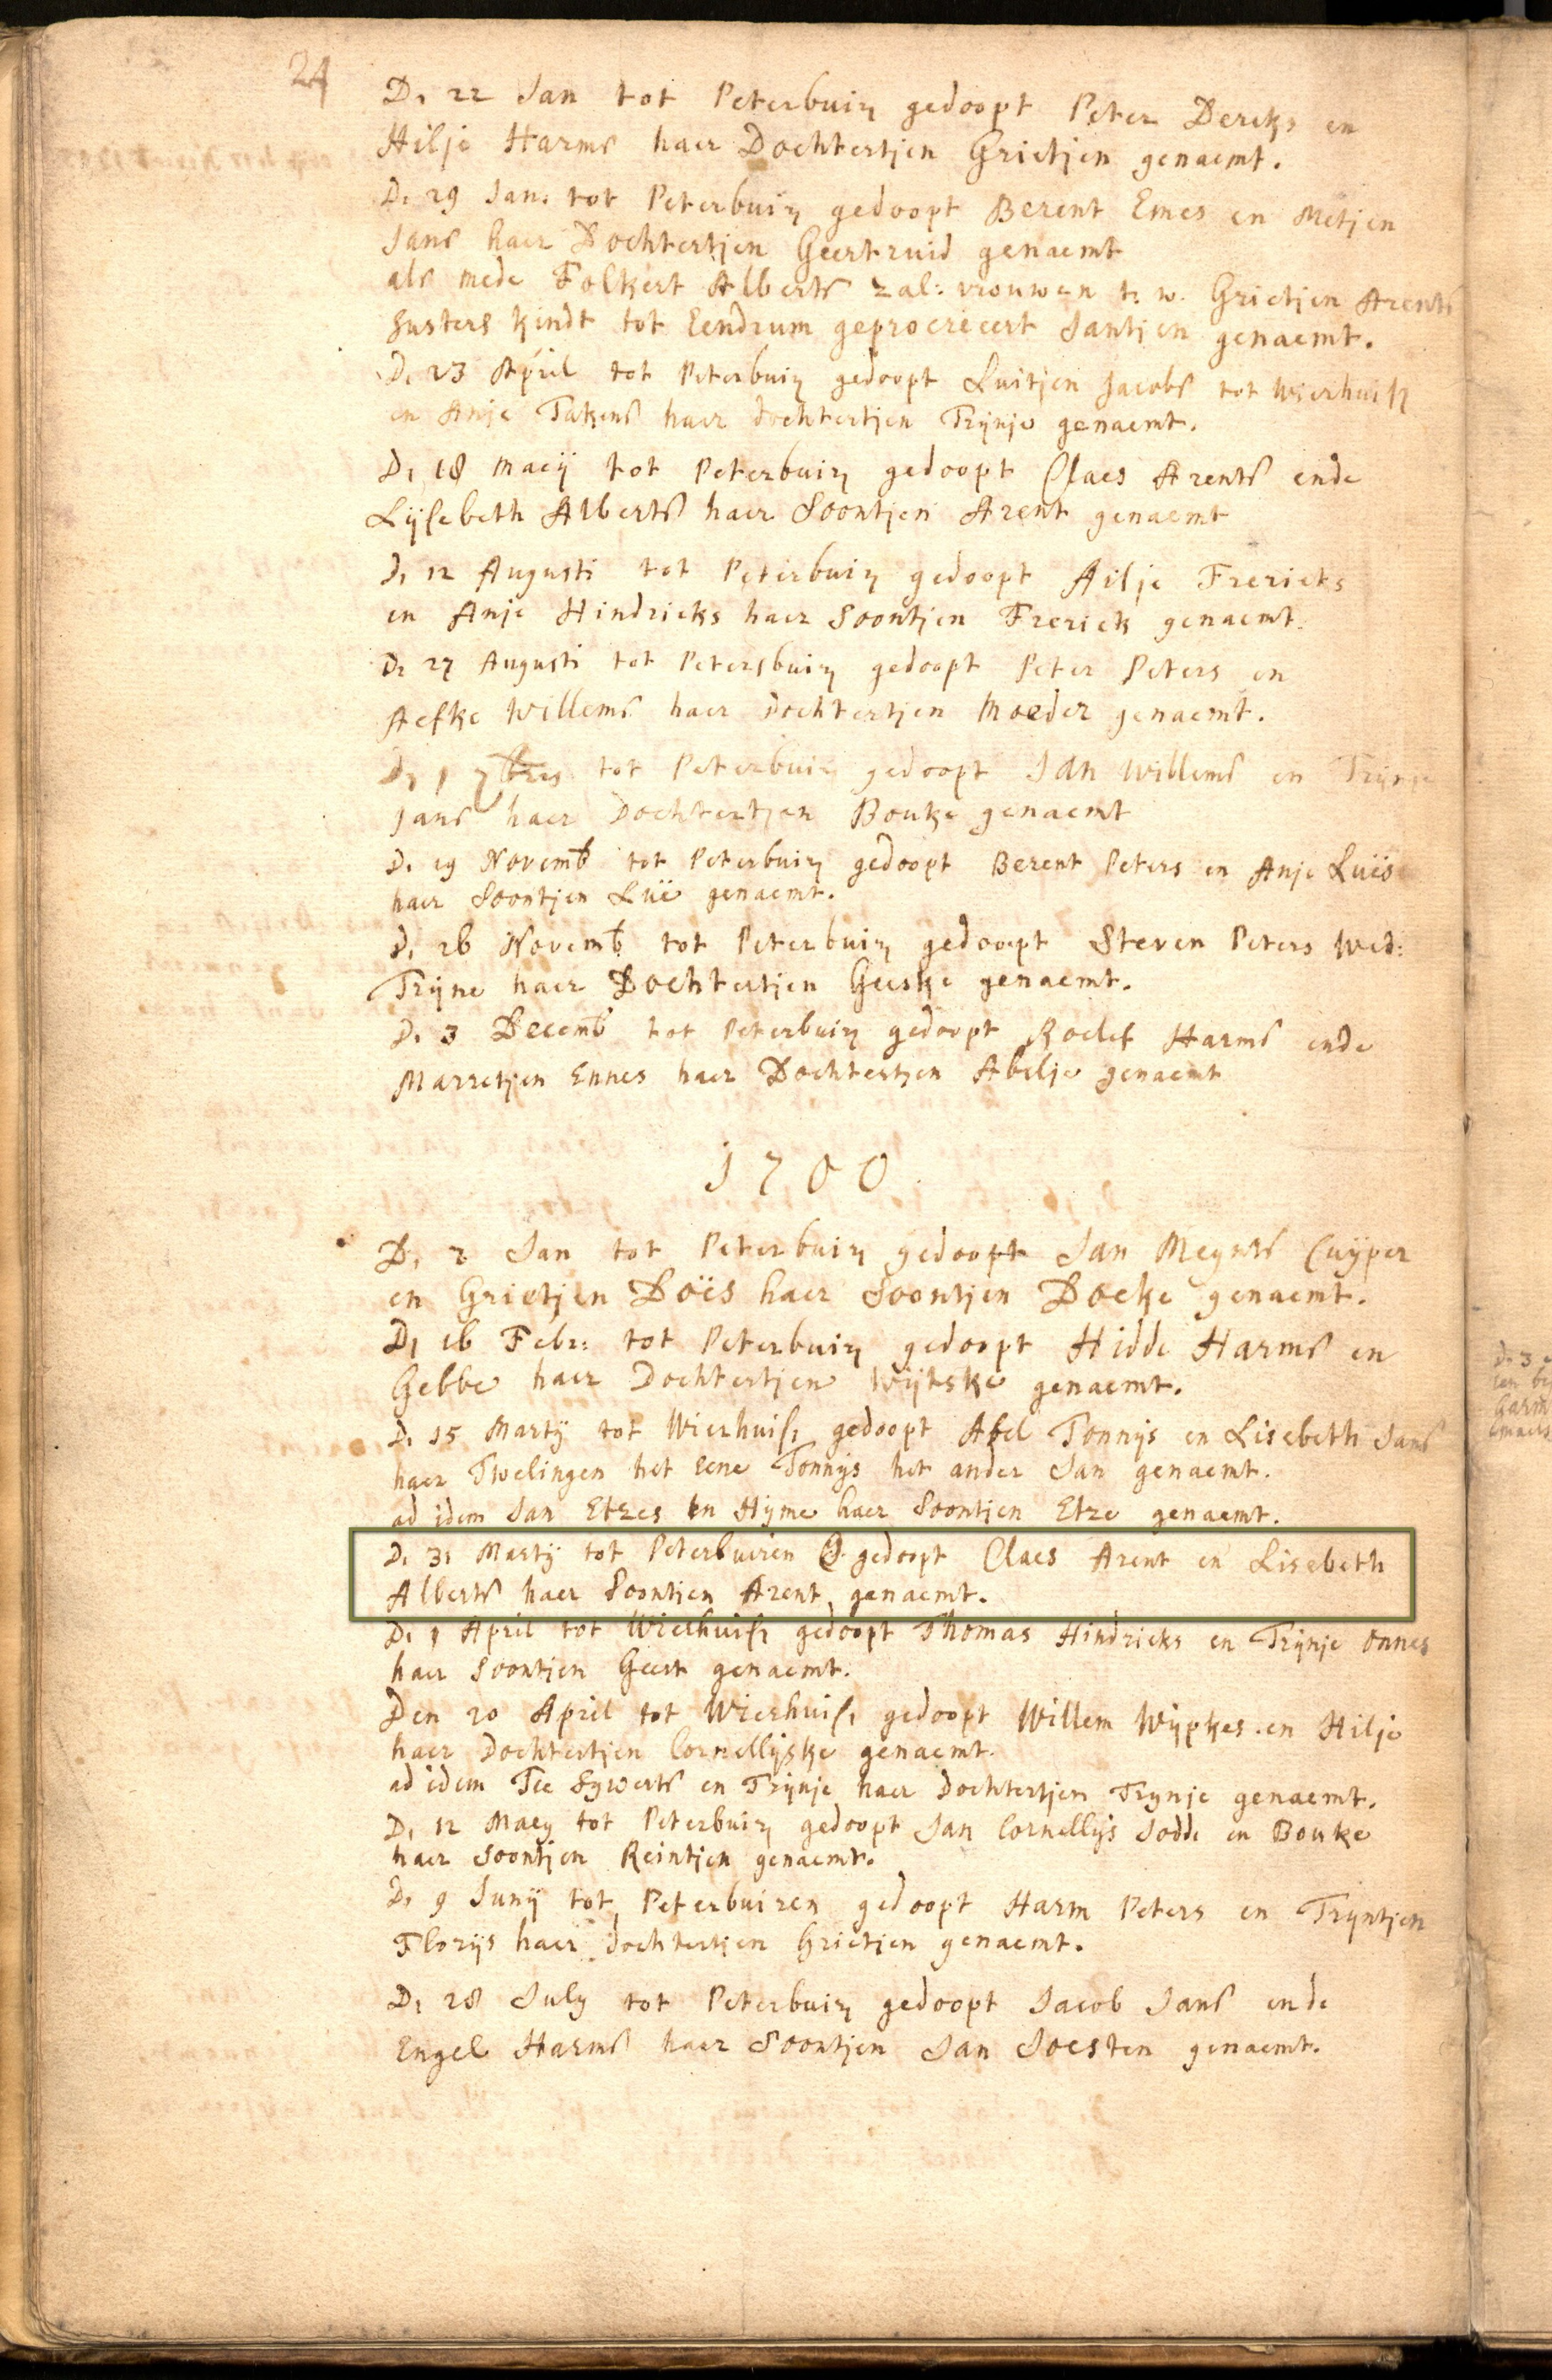 24
D. 22 Jan tot Peterbuirn gedoopt Peter Dercks en
Hilje Harms haer Dochtertjen Grietjen genaemt.
D. 29 Jan. tot Peterbuirn gedoopt Berent Emes en Metjen
Jans haer Dochtertjen Geertruid genaemt
als mede Folkert Alberts zal: vrouwen t. w. Grietjen Arents
susters kindt tot Eendrum geprocreëert Jantjen genaemt.
D. 23 April tot Peterbuirn gedoopt Luitjen Jacobs tot Wierhuisn
en Anje Takens haer dochtertjen Trijnje genaemt.
D. 18 Maeij tot Peterbuirn gedoopt Claes Arents ende
Lijsebeth Alberts haer Soontjen Arent genaemt
D. 12 Augusti tot Peterbuirn gedoopt Ailje Frericks
en Anje Hindricks haer Soontjen Frerick genaemt.
D. 27 Augusti tot Petersbuirn gedoopt Peter Peters en
Aefke Willems haer dochtertjen Moeder genaemt.
D. 1 7bres tot Peterbuirn gedoopt Jan Willems en Trijnje
Jans haer Dochtertjen Bouke genaemt
D. 19 Novemb tot Peterbuirn gedoopt Berent Peters en Anje Luïs
haer Soontjen Luë genaemt.
D. 26 Novemb. tot Peterbuirn gedoopt Steven Peters Wed:
Trijne haer Dochtertjen Geeske genaemt.
D. 3 Decemb tot Peterbuirn gedoopt Roelef Harms ende
Marretjen Ennes haer Dochtertjen Abelje genaemt
1700.
D. 2 Jan tot Peterbuirn gedoopt Jan Meynts Cuijper
en Grietjen Doës haer Soontjen Doeke genaemt.
D. 16 Febr: tot Peterbuirn gedoopt Hidde Harms en
Gebbe haer Dochtertjen Wijtske genaemt.
D. 15 Martij tot Wierhuisn gedoopt Abel Tonnijs en Lisebeth Jans
haer Twelingen het eene Tonnijs het ander Jan genaemt.
ad idem Jan Etzes en Hijme haer Soontjen Etze genaemt.
D. 31 Martij tot Peterbuiren gedoopt Claes Arent en Lisebeth
Alberts haer Soontjen Arent genaemt.
D. 1 April tot Wierhuisn gedoopt Thomas Hindricks en Trijnje Onnes
haer Soontjen Geert genaemt.
Den 20 April tot Wierhuisn gedoopt Willem Wijpkes en Hilje
haer Dochtertjen Cornellijske genaemt.
ad idem Tee Sijwerts en Trijnje haer Dochtertjen Trynje genaemt.
D. 12 Maey tot Peterbuirn gedoopt Jan Cornellijs Jodde en Bouke
haer Soontjen Reintjen genaemt.
D. 9 Junij tot Peterbuiren gedoopt Harm Peters en Tryntjen
Florijs haer dochtertjen Grietjen genaemt.
D. 28 July tot Peterbuirn gedoopt Jacob Jans ende
Engel Harms haer Soontjen Jan Joesten genaemt.